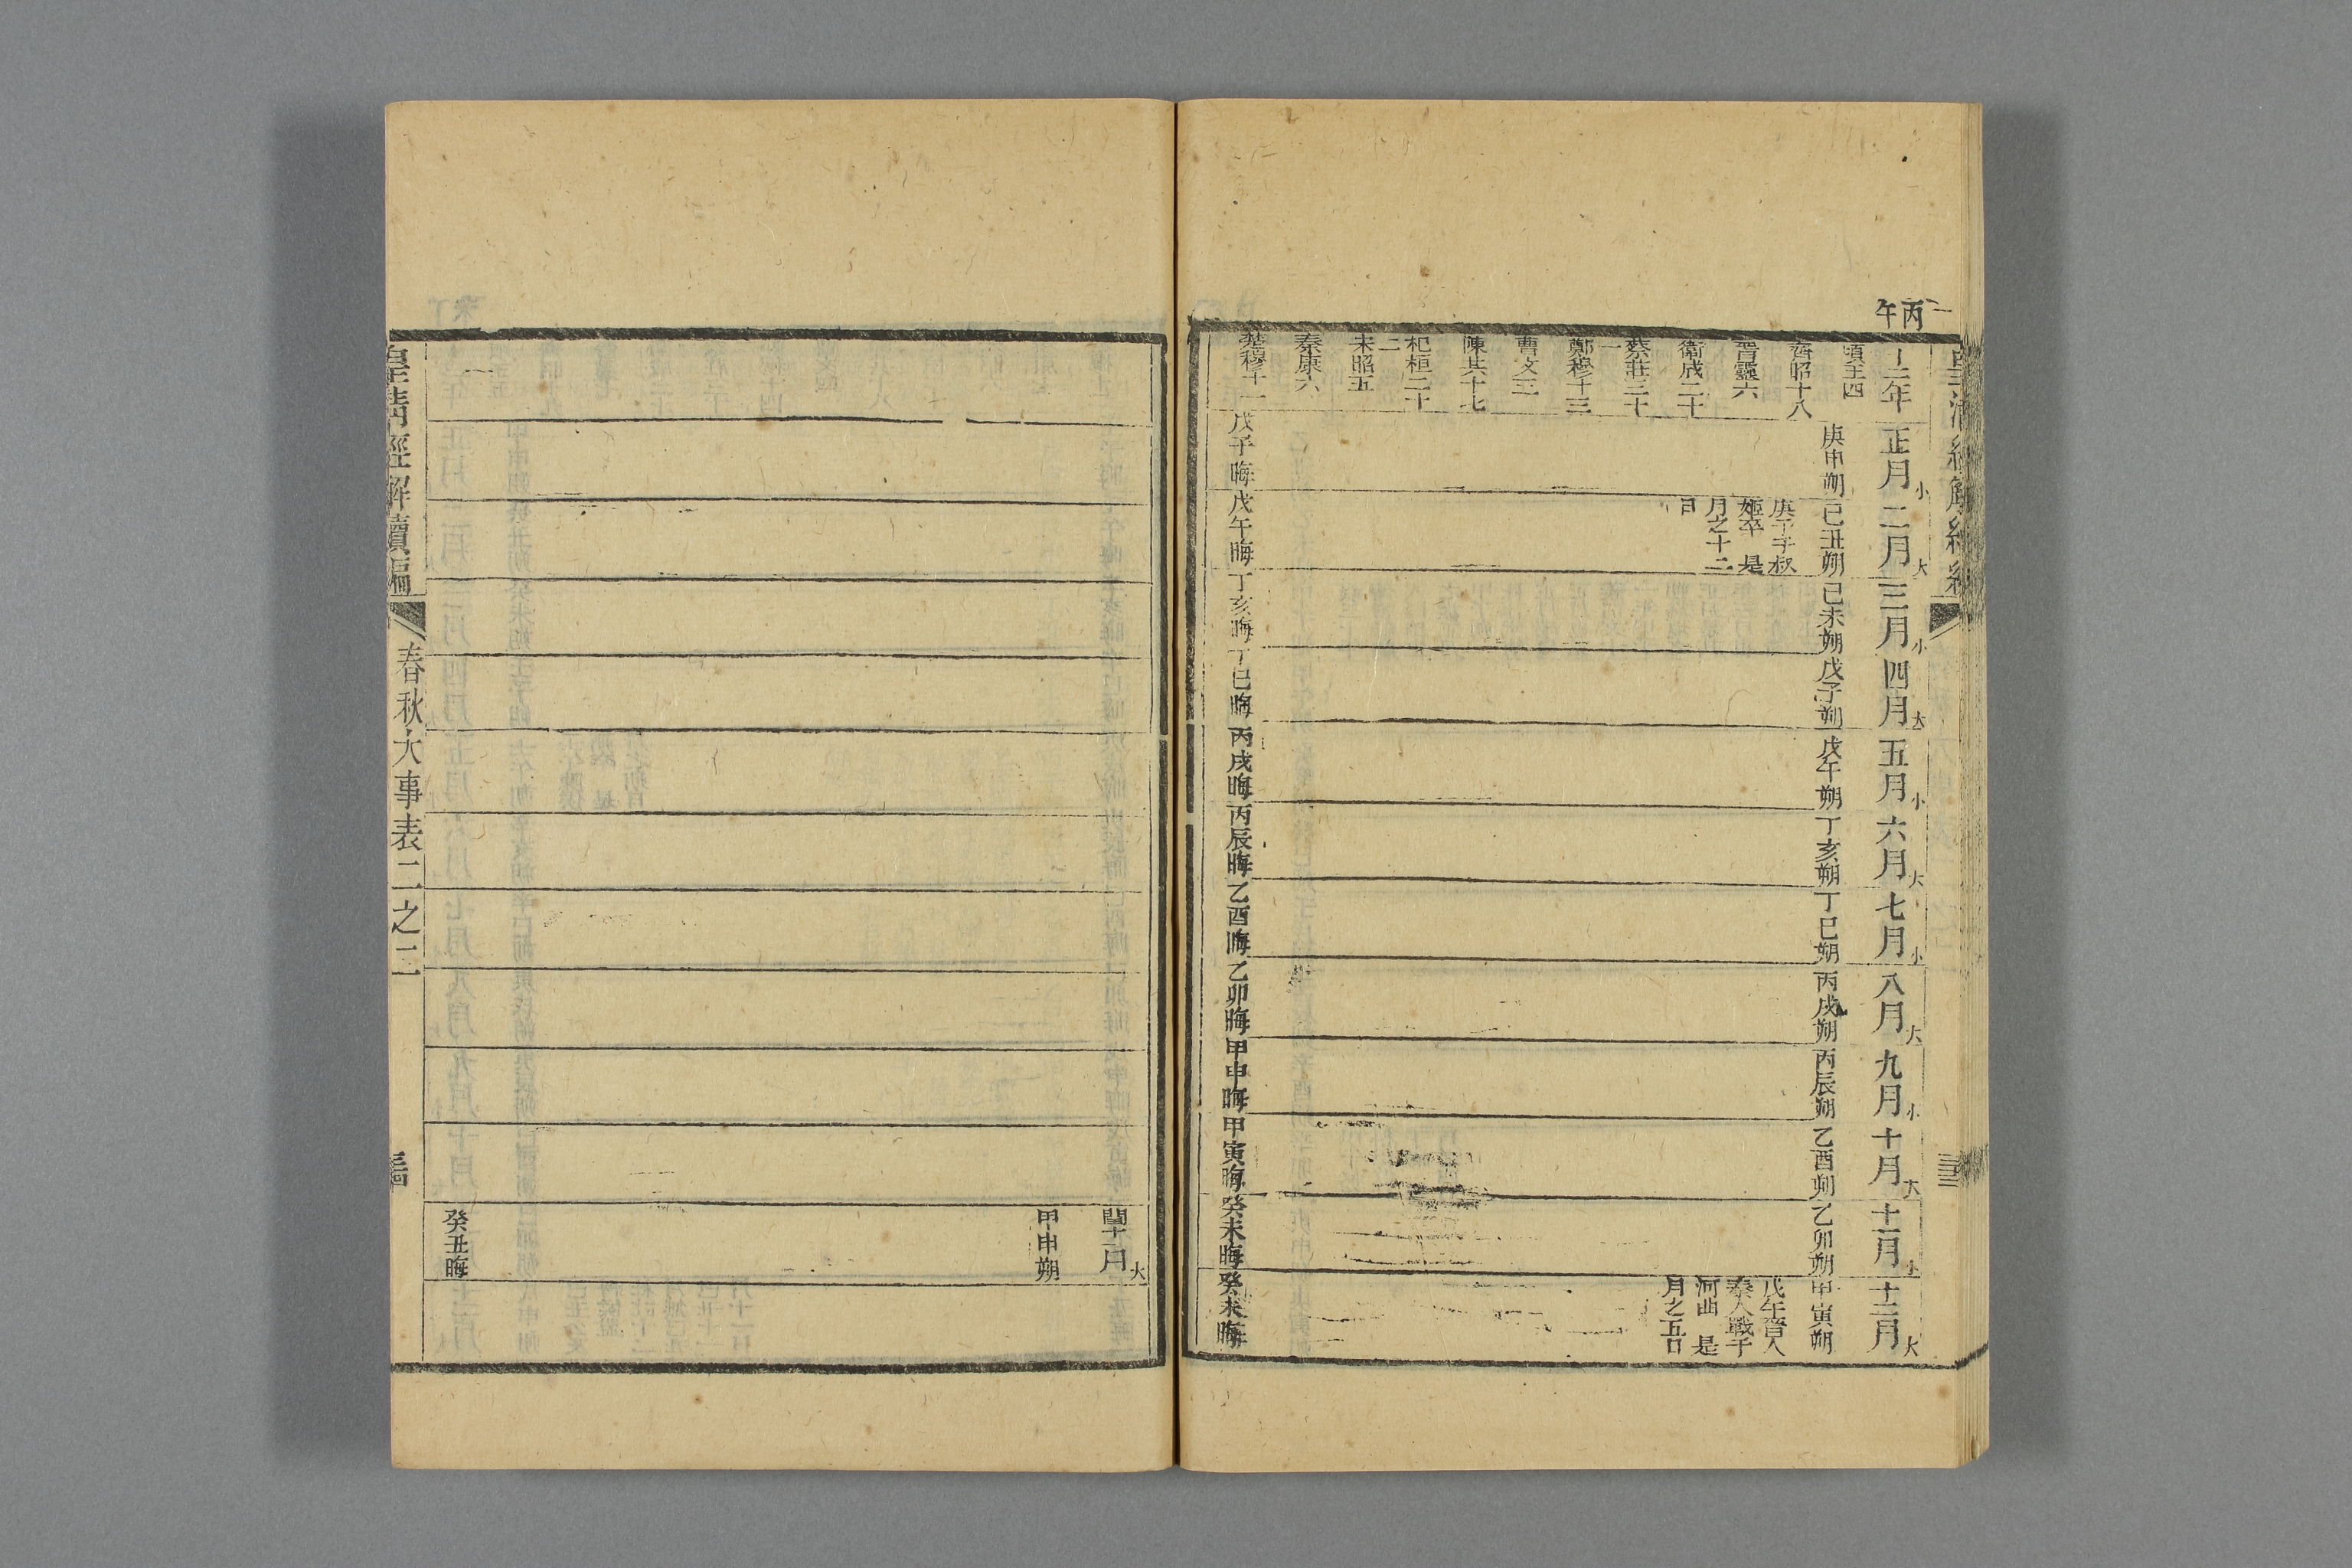 丙午
十二年
正月小
二月大
三月小
四月大
五月小
六月大
七月小
八月大
九月小
十月大
十一月小
十二月大
頃王四
齊昭十八
晉靈六
衞成二十
蔡莊二十一
鄭穆十三
曹文三
陳共十七
杞桓二十二
宋昭五
秦康六
楚穆十一
庚申朔
己丑朔
己未朔
戊子朔
戊午朔
丁亥朔
丁巳朔
丙戌朔
丙辰朔
乙酉朔
乙卯朔
甲寅朔
庚子子叔
姬卒 是
月之十二
日
戊午晉人
秦人戰于
河曲 是
月之五日
戊子晦
戊午晦
丁亥晦
丁巳晦
丙戌晦
丙辰晦
乙酉晦
乙卯晦
甲申晦
甲寅晦
癸未晦
癸未晦
閏十一月大
甲申朔
癸丑晦
皇清經解續編
春秋大事表二之二